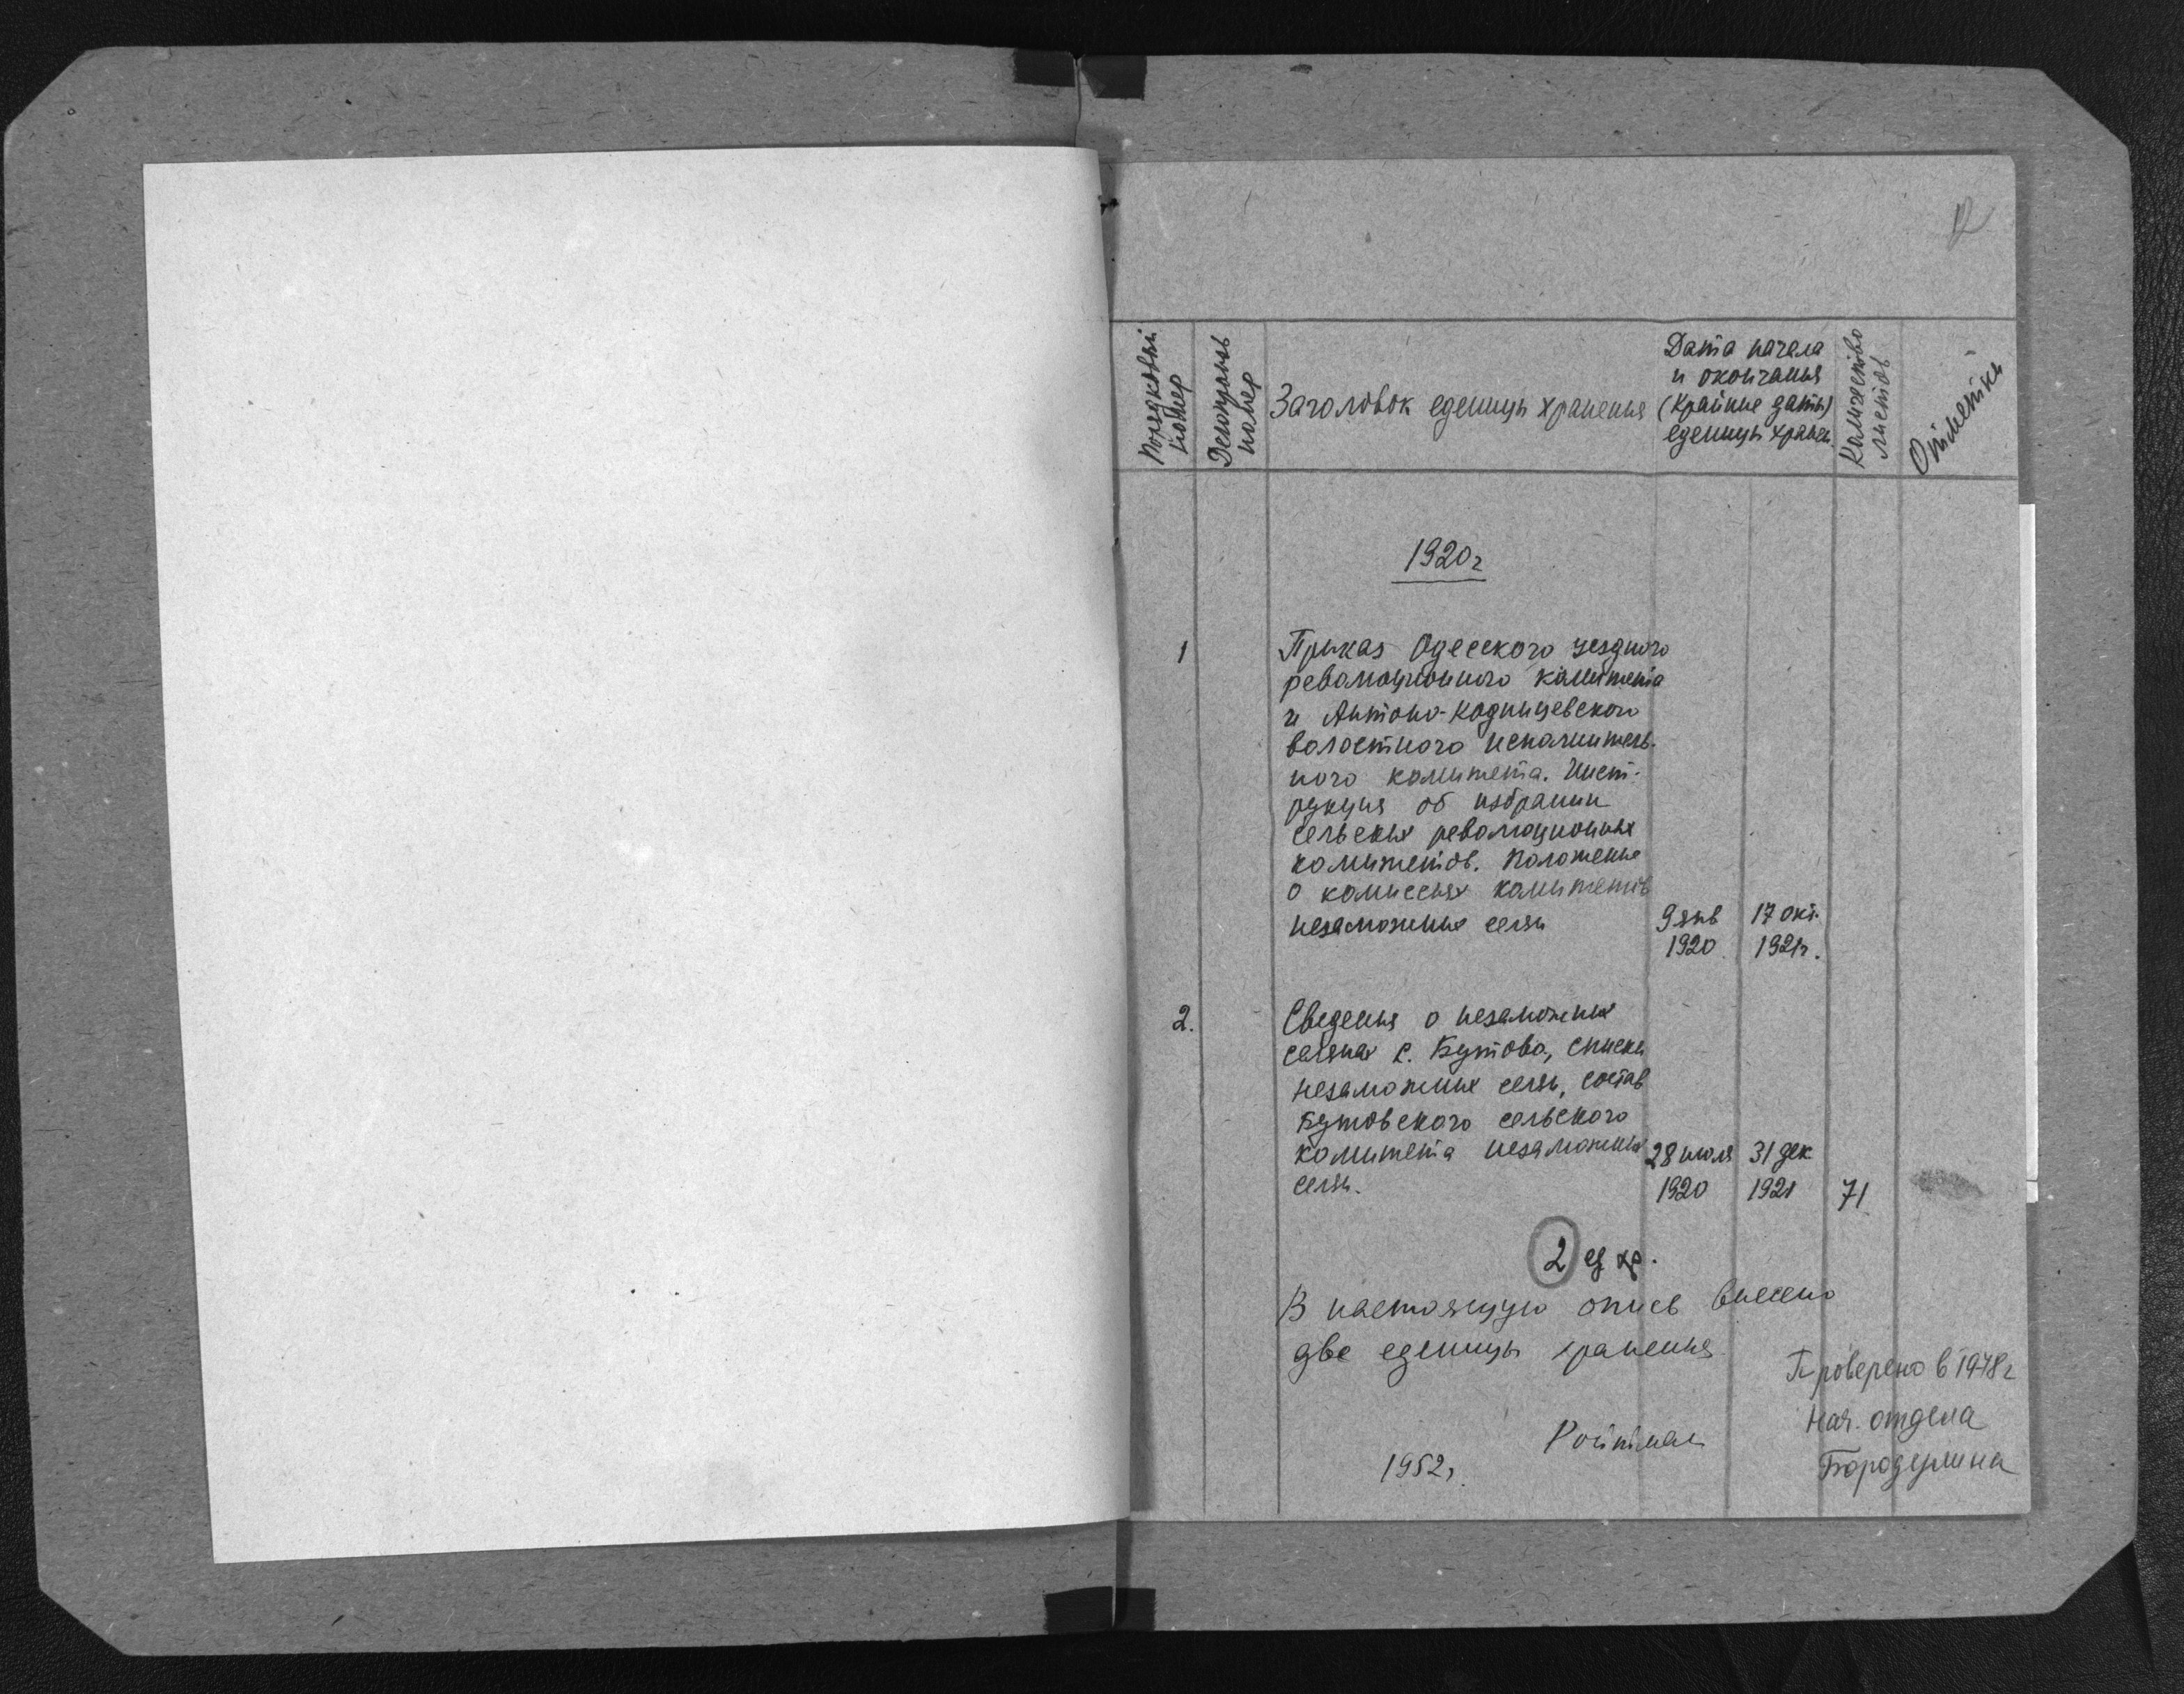 12
Порядковый
номер
Делопроизв
номер
Заголовок еденицы хранения
Дата начала
и окончания
(Крайние даты)
еденицы хранен.
Количество
листов
Отметки
1920г
1
Приказ Одесского уездного
революционного комитета
и Антоно-Кодинцевского
волостного исполнитель-
ного комитета. Инст-
рукция об избрании
сельских революционных
комитетов. Положение
о комиссиях комитетов
незаможных селян
9 янв
1920
17 окт.
1921г.
2.
Сведения о незаможных
селянах с. Бутово, списки
незаможных селян, состав
Бутовского сельского
комитета незаможных
селян.
28 июля
1920
31 дек
1921
71
2 ед хр.
В настоящую опись внесено
две еденицы хранения
Ройтман
1952г.
Проверено в 1978г
Нач. отдела